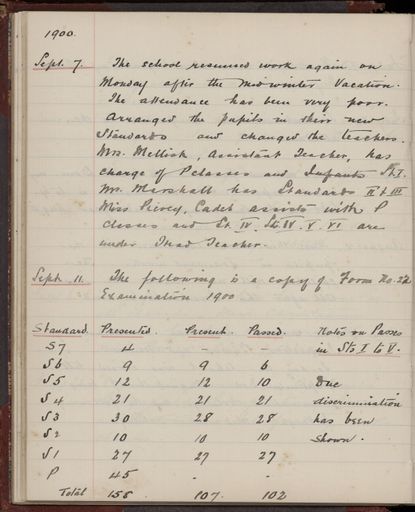 1900.
Sept. 7. The school resumed work again on
Monday after the Midwinter Vacation.
The attendance has been very poor.
Arranged the pupils in their new
Standards and changed the teachers.
Mrs. Mellish, Assistant Teacher, has
charge of P classes and Infants St. I.
Mrs. Marshall has Standards II & III
Miss Piercy, Cadet assists with P
classes and St. IV. Sts. IV. V. VI are
under Head Teacher.
Sept. 11. The following is a copy of Form No. 22
Examination 1900
Standard. Presented. Present. Passed. Notes on Passes
S7 4 - - in Sts I to V.
S6 9 9 6
S5 12 12 10 Due
S4 21 21 21 discrimination
S3 30 28 28 has been
S2 10 10 10 shown.
S1 27 27 27
P 45 - -
Total 158 107 102